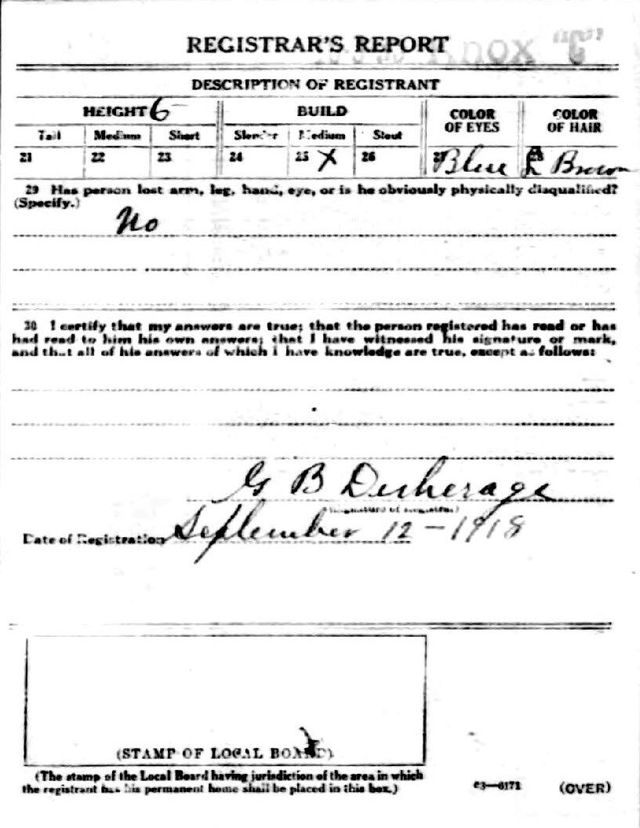 Knox "C"
REGISTRAR'S REPORT
DESCRIPTION OF REGISTRANT
HEIGHT 6 BUILD COLOR OF EYES COLOR OF HAIR
Tall Medium Short Slender Medium Stout
21 22 23 24 25 X 26 27 Blue 28 L Brown
29 Has person lost arm, leg, hand, eye, or is he obviously physically disqualified?
(Specify.)
No
30 I certify that my answers are true; that the person registered has read or has
had read to him his own answers; that I have witnessed his signature or mark,
and that all of his answers of which I have knowledge are true, except as follows:
G B Detherage
(Signature of Registrar)
Date of Registration September 12-1918
(STAMP OF LOCAL BOARD)
(The stamp of the Local Board having jurisdiction of the area in which
the registrant has his permanent home shall be placed in this box.)
03—6171 (OVER)